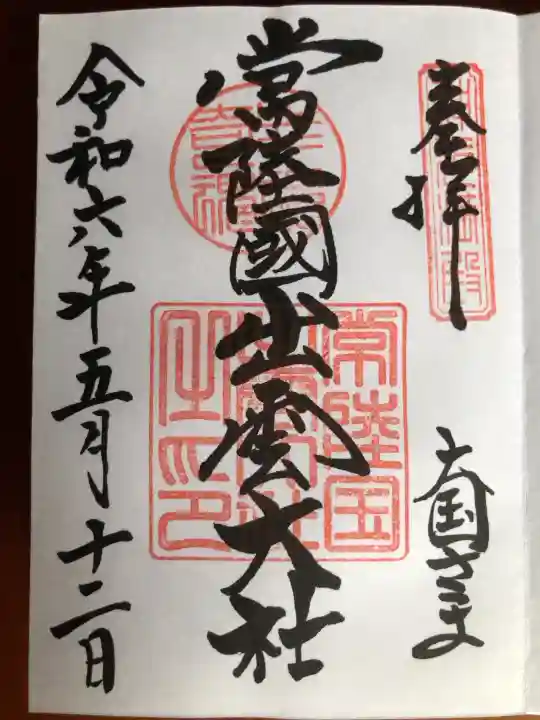 奉拝
大国さま
常陸國出雲大社
常陸国出雲大社之印
令和六年五月十二日